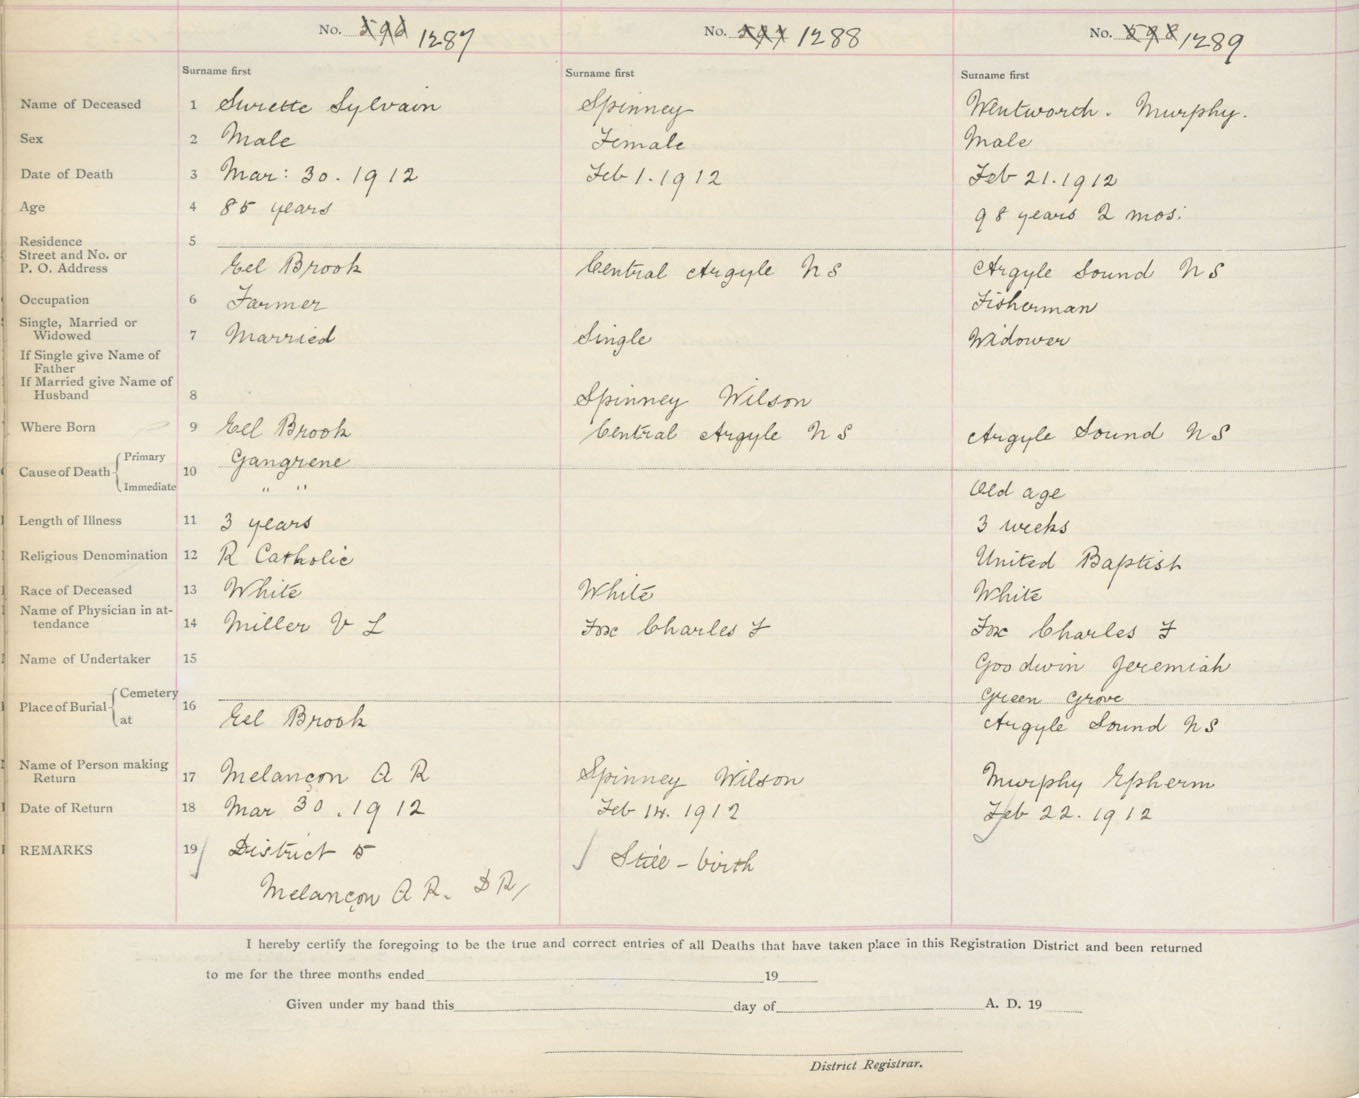 No. 1287 No. 1288 No. 1289
Surname first Surname first Surname first
Name of Deceased 1 Surette Sylvain Spinney Wentworth. Murphy.
Sex 2 Male Female Male
Date of Death 3 Mar: 30. 1912 Feb 1. 1912 Feb 21. 1912
Age 4 85 years 98 years 2 mos.
Residence 5
Street and No. or
P. O. Address Eel Brook Central Argyle NS Argyle Sound NS
Occupation 6 Farmer Fisherman
Single, Married or
Widowed 7 Married Single Widower
If Single give Name of
Father
If Married give Name of
Husband 8 Spinney Wilson
Where Born 9 Eel Brook Central Argyle NS Argyle Sound NS
Primary Gangrene
Cause of Death 10
Immediate " " Old age
Length of Illness 11 3 years 3 weeks
Religious Denomination 12 R Catholic United Baptist
Race of Deceased 13 White White White
Name of Physician in at-
tendance 14 Miller V L Fox Charles F Fox Charles F
Name of Undertaker 15 Goodwin Jeremiah
Cemetery Green Grove
Place of Burial 16
at Eel Brook Argyle Sound NS
Name of Person making
Return 17 Melançon A R Spinney Wilson Murphy Epherm
Date of Return 18 Mar 30. 1912 Feb 14. 1912 Feb 22. 1912
REMARKS 19 District 5 Still-birth
Melançon A R. D R,
I hereby certify the foregoing to be the true and correct entries of all Deaths that have taken place in this Registration District and been returned
to me for the three months ended 19
Given under my hand this day of A. D. 19
District Registrar.